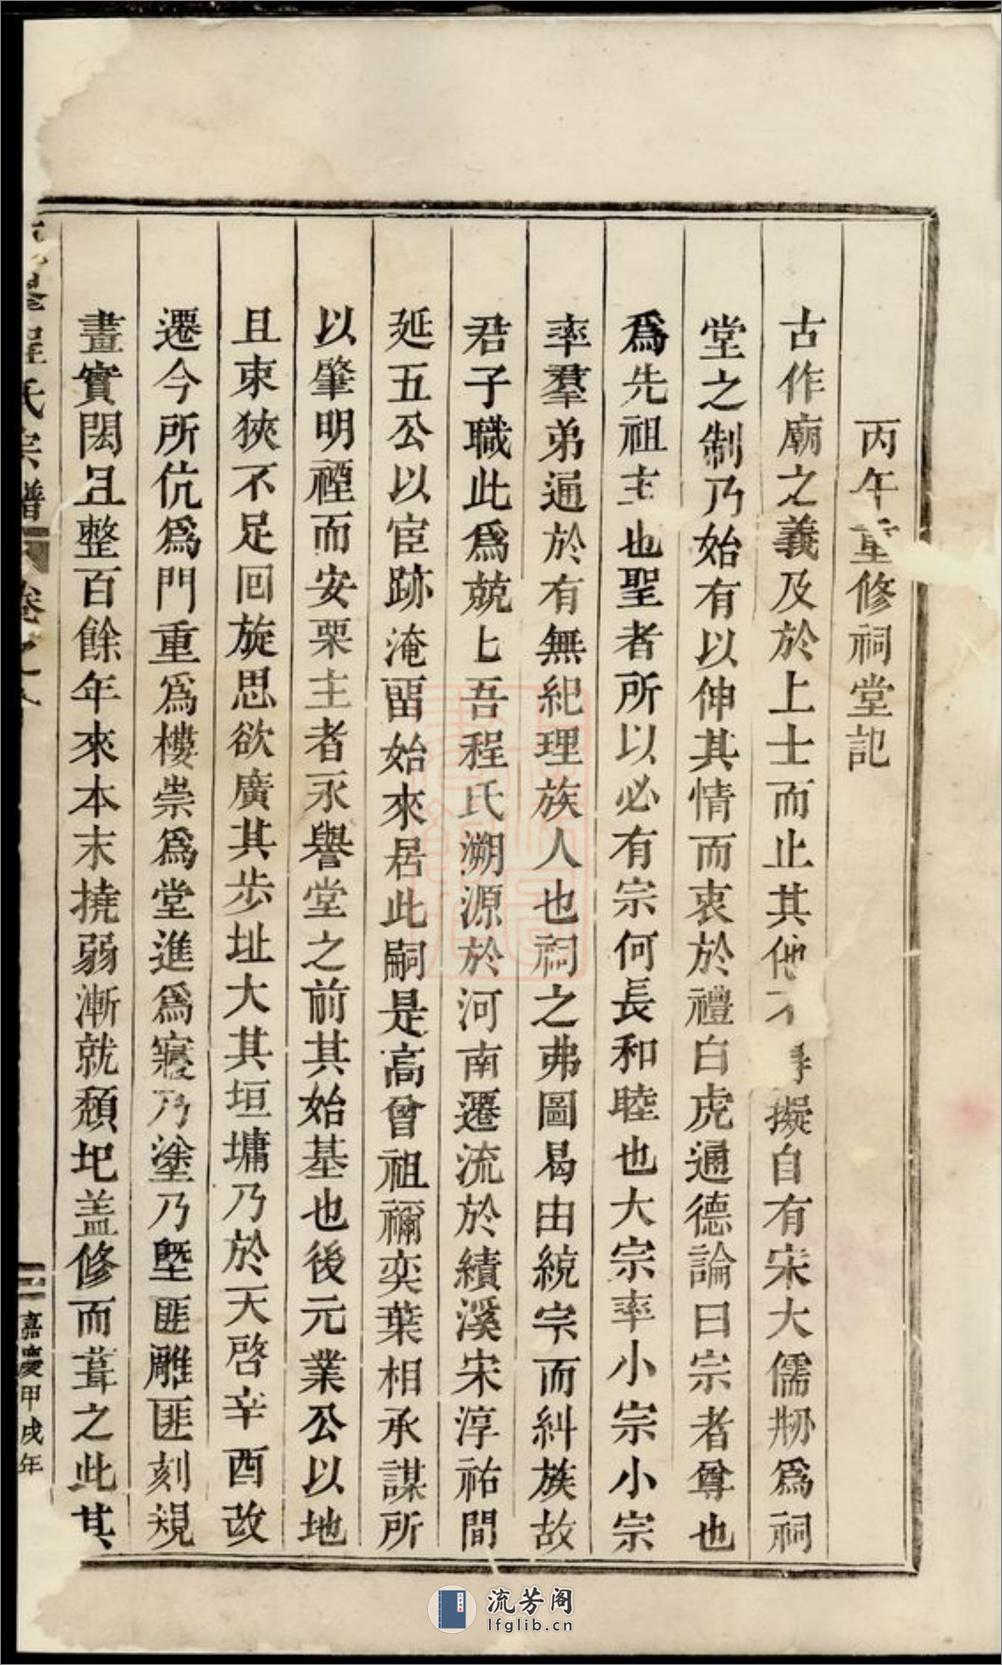 丙午重修祠堂記
古作廟之義及於上士而止其他不得擬自有宋大儒刱爲祠
堂之制乃始有以伸其情而衷於禮白虎通德論曰宗者尊也
爲先祖主也聖者所以必有宗何長和睦也大宗率小宗小宗
率羣弟通於有無紀理族人也祠之弗圖曷由統宗而糾族故
君子職此爲兢上吾程氏溯源於河南遷流於績溪宋淳祐間
延五公以宦跡淹畱始來居此嗣是高曾祖禰奕葉相承謀所
以肇明禋而安栗主者永譽堂之前其始基也後元業公以地
且東狹不足回旋思欲廣其步址大其垣墉乃於天啓辛酉改
遷今所伉爲門重爲樓崇爲堂進爲寢乃塗乃塈匪雕匪刻規
畫實閎且整百餘年來本末撓弱漸就頽圯盖修而葺之此其
程氏宗譜 卷之八
嘉慶甲戌年
流芳阁
lfglib.cn